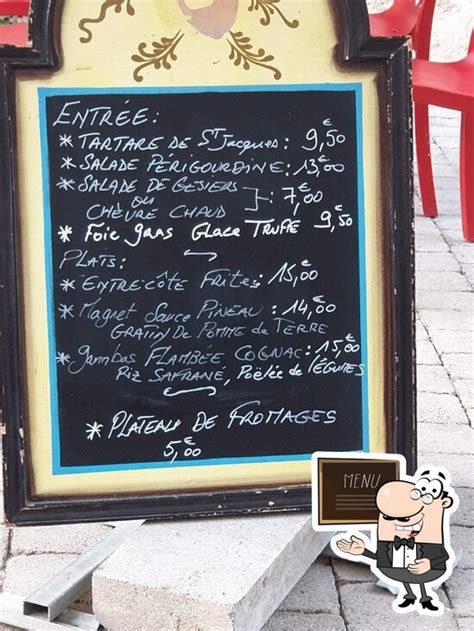 ENTRÉE:
* TARTARE DE ST Jacques: 9,50 €
* SALADE PÉRIGOURDINE: 13,00 €
* SALADE DE GESIERS
OU
CHÈVRE CHAUD } : 7,00 €
* Foie gras Glace TRUFFE 9,50 €
PLATS:
* ENTRECÔTE Frites: 15,00 €
* Magret Sauce PINEAU: 14,00 €
GRATIN DE POMME DE TERRE
* gambas FLAMBEE COGNAC: 15,00 €
RIZ SAFRANE, Poêlée de LÉGUMES
* PLATEAU DE FROMAGES
5,00 €
MENU